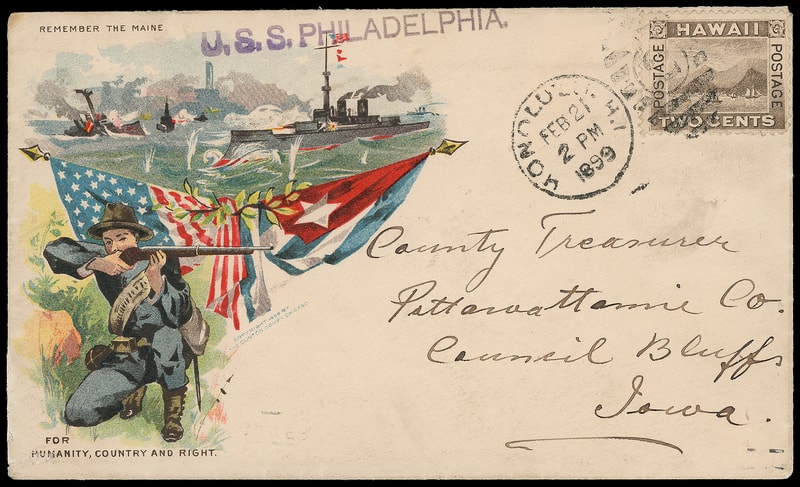 REMEMBER THE MAINE
U.S.S. PHILADELPHIA.
HAWAII
POSTAGE
POSTAGE
TWO CENTS
HONOLULU H.I.
FEB 21
2 PM
1899
County Treasurer
Pottawattamie Co.
Council Bluffs
Iowa.
COPYRIGHT 1898 BY
FOR
HUMANITY, COUNTRY AND RIGHT.